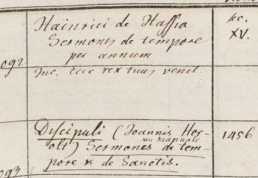 Hainrici de Hassia
Sermones de tempore
per annum
Inc. Ecce rex tuus venit
XV.
Discipuli (Joannis Her-
olt) Sermones de tem-
pore & de Sanctis.
1456